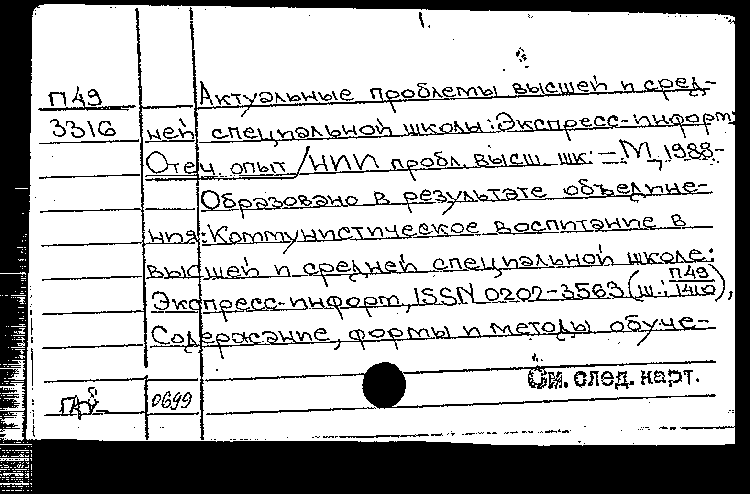 1.
П49 Актуальные проблемы высшей и сред-
3316 ней специальной школы: Экспресс-информ:
Отеч. опыт / НИИ пробл. высш. шк. – М., 1988-
Образовано в результате объедине-
ния: Коммунистическое воспитание в
высшей и средней специальной школе:
Экспресс-информ, ISSN 0202-3563 (ш.: П49/1410),
Содержание, формы и методы обуче-
См. след. карт.
0699